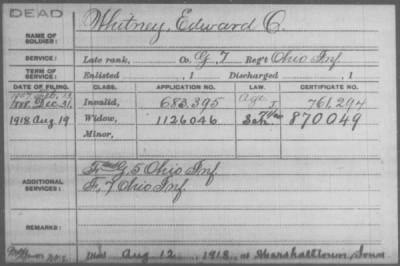 DEAD
NAME OF SOLDIER:
Whitney, Edward C.
SERVICE:
Late rank, Co. G, 7 Reg't Ohio Inf.
TERM OF SERVICE:
Enlisted , 1 Discharged , 1
DATE OF FILING. CLASS. APPLICATION NO. LAW. CERTIFICATE NO.
Dec. 31, Invalid, 683.395 Age 761,294
1918 Aug. 19 Widow, 1126046 870049
Minor,
ADDITIONAL SERVICES:
G, 5 Ohio Inf.
F, 7 Ohio Inf.
REMARKS:
Died Aug 12, 1918, at Marshalltown, Iowa